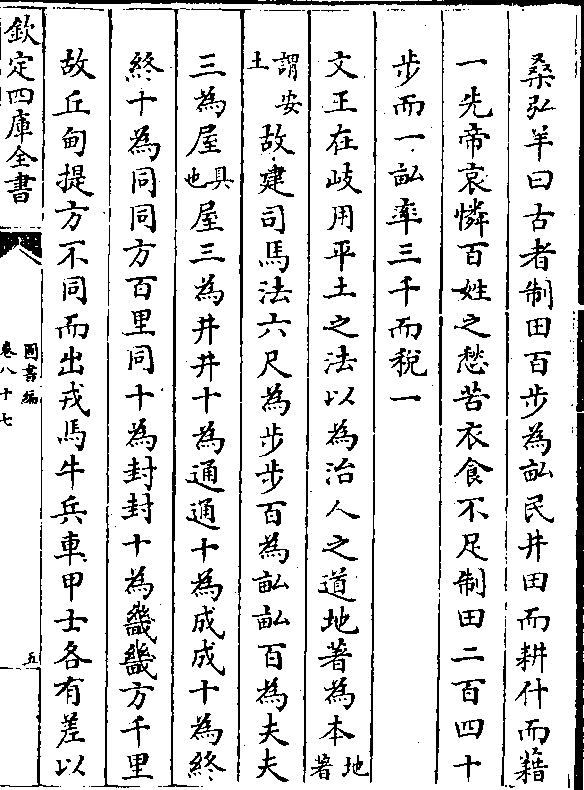 桑弘羊曰古者制田百步為畝民井田而耕什而藉
一先帝哀憐百姓之愁苦衣食不足制田二百四十
步而一畝率三千而稅一
文王在岐用平土之法以為治人之道地著為本地著
謂安土故建司馬法六尺為步步百為畝畝百為夫夫
三為屋具也屋三為井井十為通通十為成成十為終
終十為同同方百里同十為封封十為畿畿方千里
故丘甸提方不同而出戎馬牛兵車甲士各有差以
欽定四庫全書
圖書編
卷八十七
五